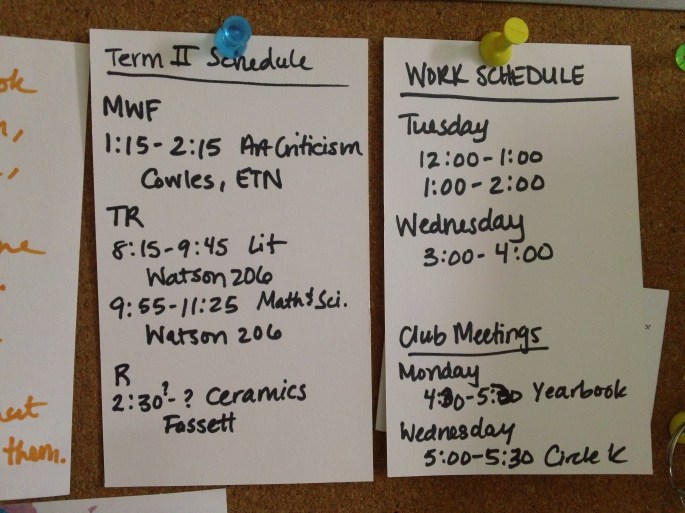 ok
n,
ne
at
them.
Term II Schedule
MWF
1:15-2:15 Art Criticism
Cowles, ETN
TR
8:15-9:45 Lit
Watson 206
9:55-11:25 Math & Sci.
Watson 206
R
2:30?-? Ceramics
Fassett
WORK SCHEDULE
Tuesday
12:00-1:00
1:00-2:00
Wednesday
3:00-4:00
Club Meetings
Monday
4:30-5:30 Yearbook
Wednesday
5:00-5:30 Circle K
x